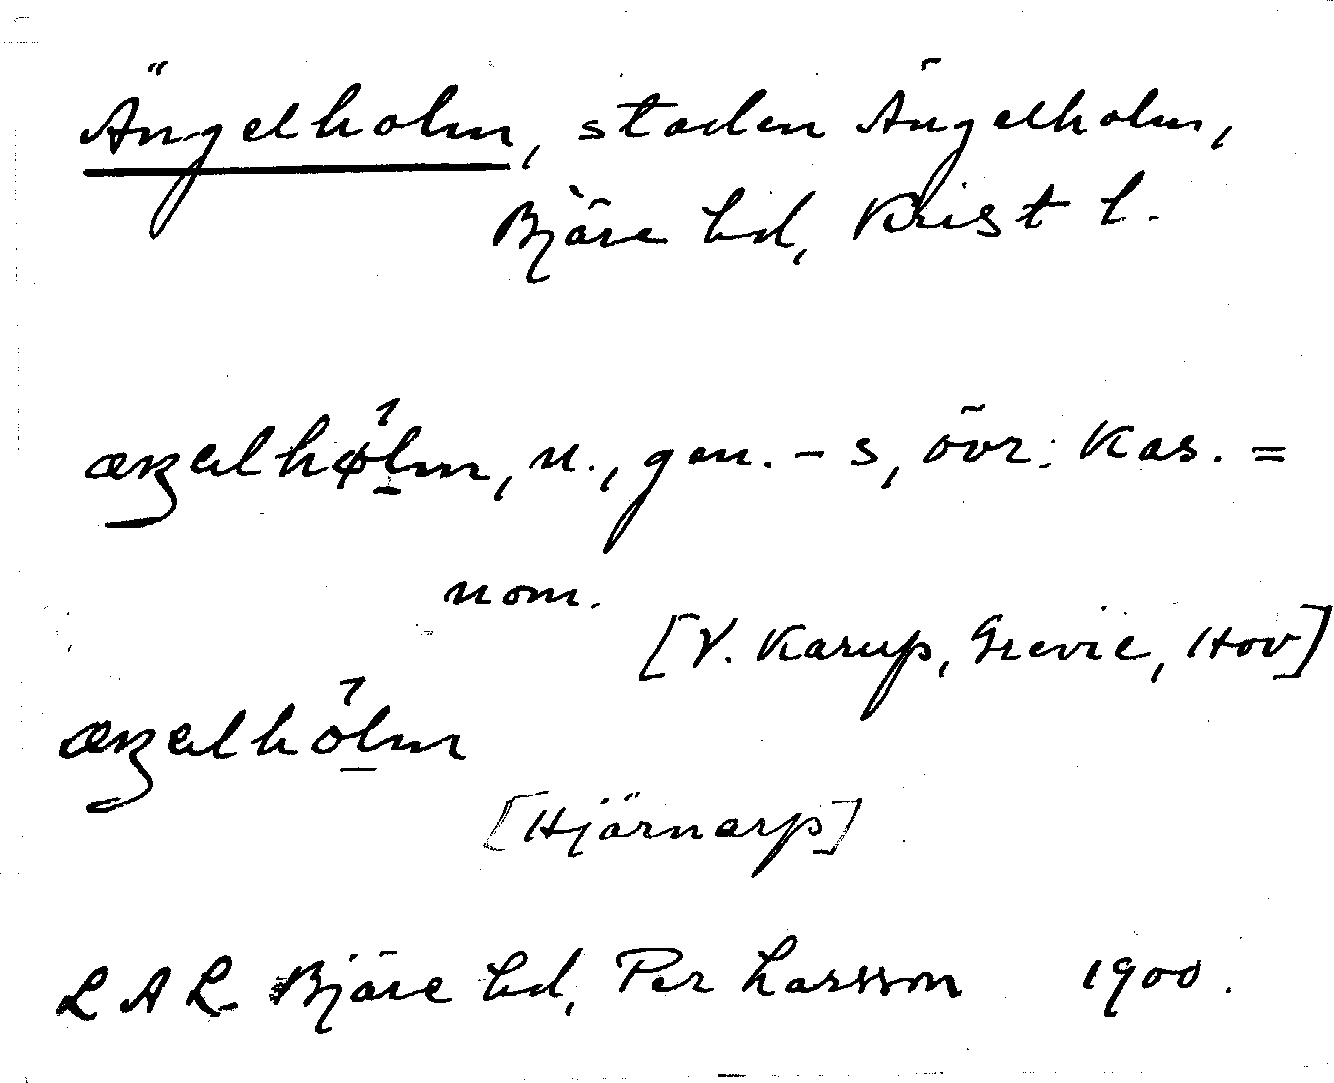 Ängelholm, staden Ängelholm,
Bjäre hd, Krist l.
æŋəlhølm, n., gen. -s, övr. kas. =
nom.
[V. Karup, Grevie, Hov]
æŋəlholm
[Hjärnarp]
LAL Bjäre hd, Per Larsson 1900.